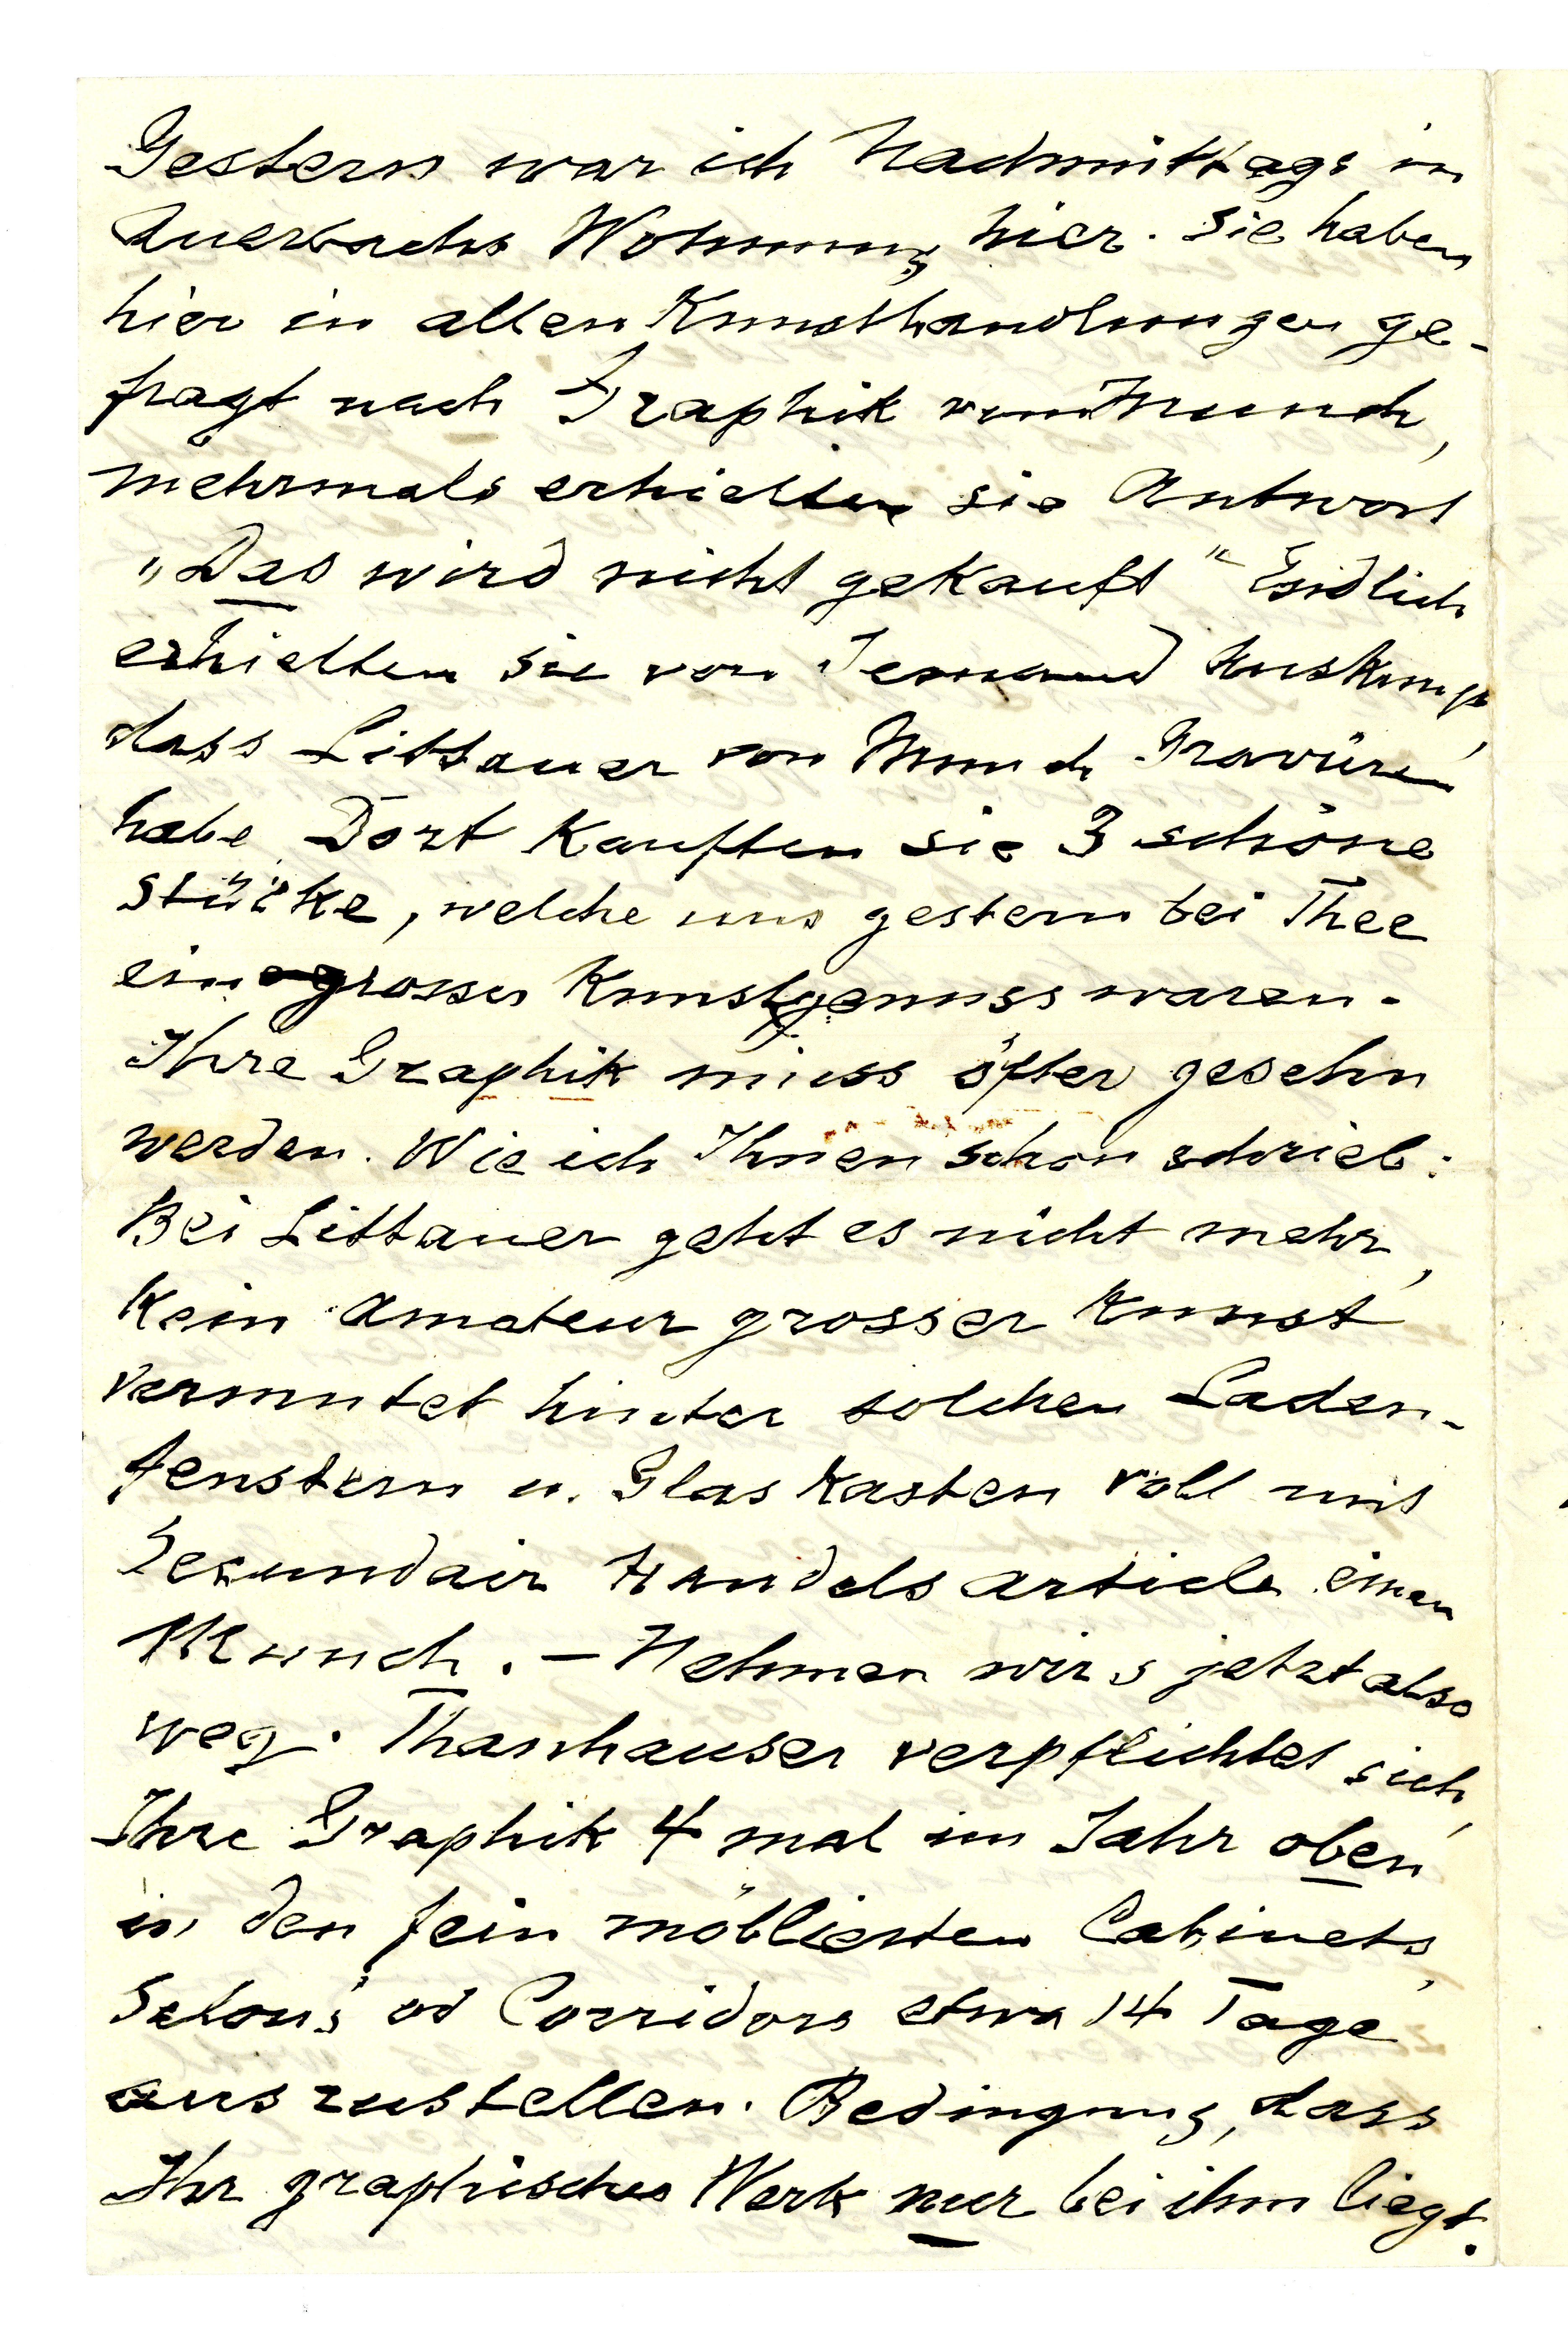 Gestern war ich Nachmittags in
Auerbachs Wohnung hier. Sie haben
hier in allen Kunsthandlungen ge-
fragt nach Graphik von Munch,
mehrmals erhielten sie Antwort
„Das wird nicht gekauft" Endlich
erhielten sie von Jemand Auskunft,
dass Littauer von Munch Gravüren
habe. Dort kauften sie 3 schöne
Stücke, welche uns gestern bei Thee
ein grosser Kunstgenuss waren.
Ihre Graphik muss öfter gesehn
werden. Wie ich Ihnen schon schrieb:
Bei Littauer geht es nicht mehr,
kein Amateur grosser Kunst
vermutet hinter solchen Laden-
fenstern u. Glaskasten voll mit
Secundair Handelsarticle einen
Munch. – Nehmen wirs jetzt also
weg. Thanhauser verpflichtet sich,
Ihre Graphik 4 mal im Jahr oben
in den fein möblierten Cabinets,
Salons od Corridors etwa 14 Tage
auszustellen. Bedingung, dass
Ihr graphisches Werk nur bei ihm liegt.